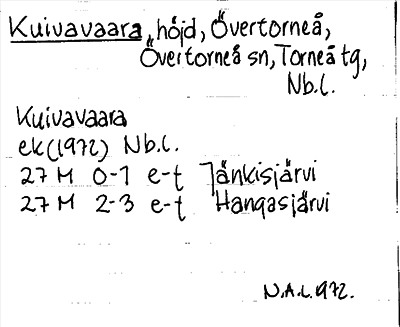 Kuivavaara, höjd, Övertorneå,
Övertorneå sn, Torneå tg,
Nb.l.
Kuivavaara
ek (1972) Nb.l.
27 M 0-1 e-f Jänkisjärvi
27 M 2-3 e-f Hangasjärvi
N.A.L. 1972.